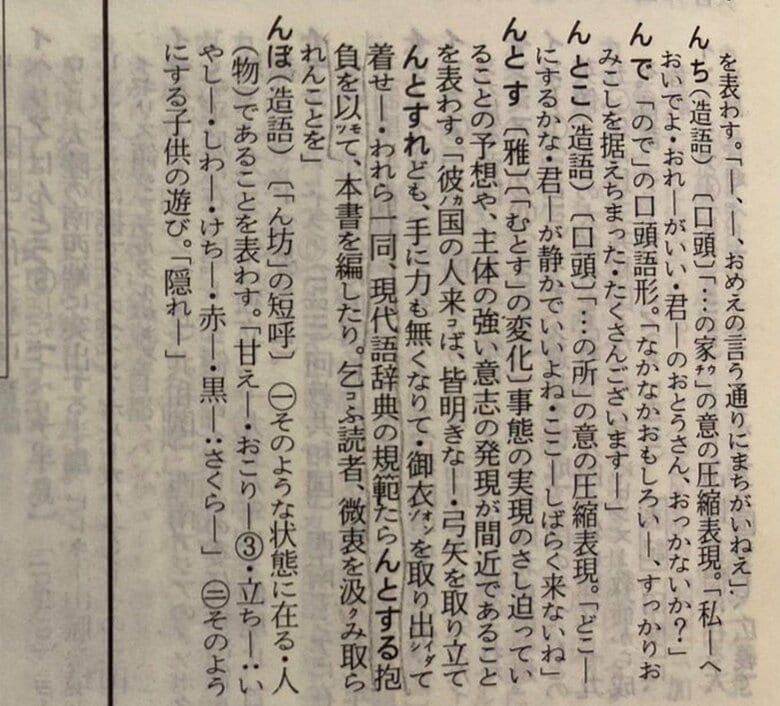 を表わす。「―、―、おめえの言う通りにまちがいねえ」
んち(造語) 〔口頭〕「…の家ﾁｳ」の意の圧縮表現。「私―へ
おいでよ・おれ―がいい・君―のおとうさん、おっかないか?」
んで 「ので」の口頭語形。「なかなかおもしろい―、すっかりお
みこしを据えちまった・たくさんございます―」
んとこ(造語) 〔口頭〕「…の所」の意の圧縮表現。「どこ―
にするかな・君―が静かでいいよね・ここ―しばらく来ないね」
んとす 〔雅〕〔「むとす」の変化〕事態の実現のさし迫ってい
ることの予想や、主体の強い意志の発現が間近であること
を表わす。「彼ﾉｶ国の人来ｺば、皆明きな―・弓矢を取り立て
んとすれども、手に力も無くなりて・御衣ｿｵﾝを取り出ｼｲﾀﾞて
着せ―・われら一同、現代語辞典の規範たらんとする抱
負を以ﾂﾓて、本書を編したり。乞ｺふ読者、微衷を汲ｸみ取ら
れんことを」
んぼ(造語) 〔「ん坊」の短呼〕 ㊀そのような状態に在る・人
(物)であることを表わす。「甘え―・おこり―③・立ち―:い
やし―・しわ―・けち―・赤―・黒―:さくら―」 ㊁そのよう
にする子供の遊び。「隠れ―」